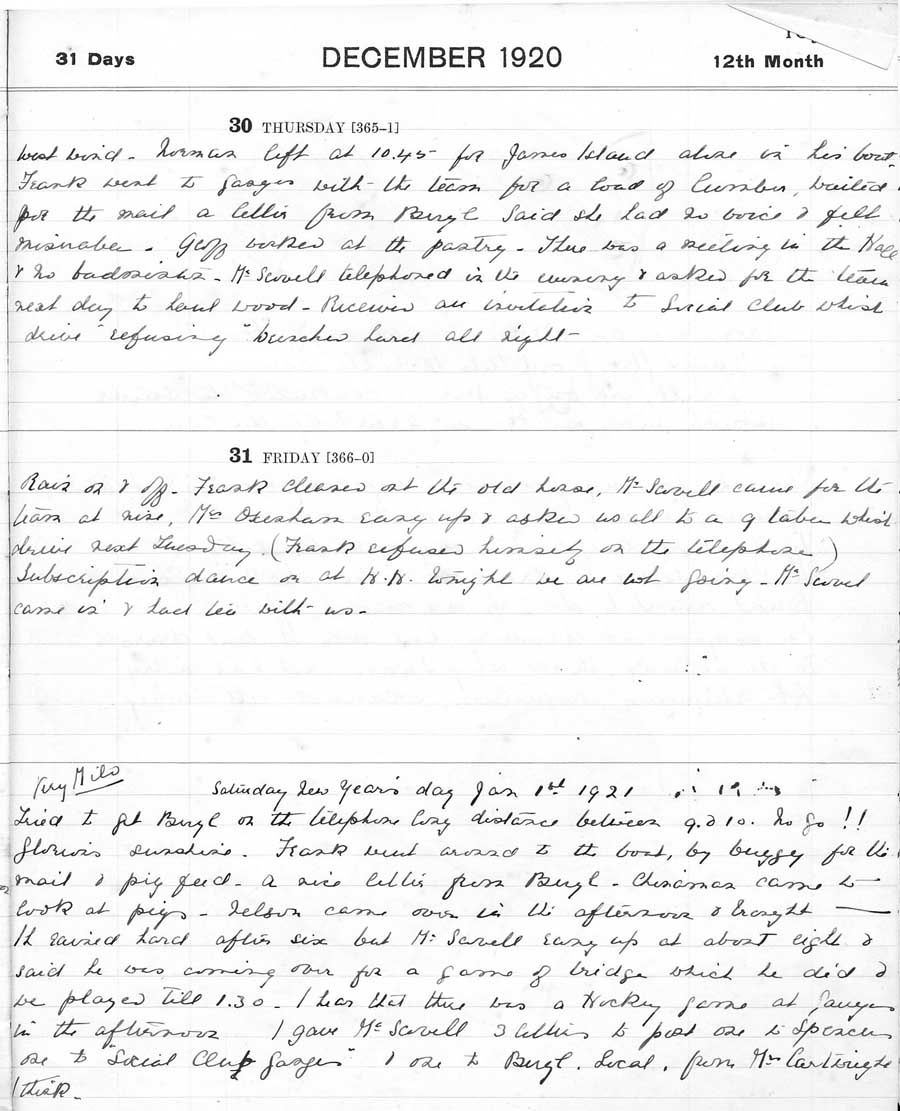 31 Days DECEMBER 1920 12th Month
30 THURSDAY [365-1]
West wind - Norman left at 10.45 for James Island alone in his boat.
Frank went to Ganges with the team for a load of lumber, waited
for the mail a letter from Beryl said she had no voice & felt
miserable - Geoff worked at the pastry - There was a meeting in the Hall
& no badminton - Mr Scovell telephoned in the evening & asked for the team
next day to haul wood - Received an invitation to Social Club whist
drive "refusing" hard all night -
31 FRIDAY [366-0]
Rain on & off - Frank cleaned out the old house, Mr Scovell came for the
team at nine, Mrs Oxenham rang up & asked us all to a 9 table whist
drive next Tuesday. (Frank refused himself on the telephone)
Subscription dance on at H.H. tonight we are not going - Mr Scovell
came in & had tea with us -
Very Mild
Saturday New Year's day Jan 1st 1921
Tried to get Beryl on the telephone long distance between 9 & 10. No go !!
Glorious sunshine. Frank went around to the boat, by buggy for the
mail & pig feed - a nice letter from Beryl - Chinaman came to
look at pigs - Nelson came over in the afternoon & brought —
It rained hard after six but Mr Scovell rang up at about eight &
said he was coming over for a game of bridge which he did &
we played till 1.30 - I hear that there was a Hockey game at Ganges
in the afternoon I gave Mr Scovell 3 letters to post one to Spencer
one to "Social Club Ganges" & one to Beryl. Local, from Mrs Cartwright
I think -